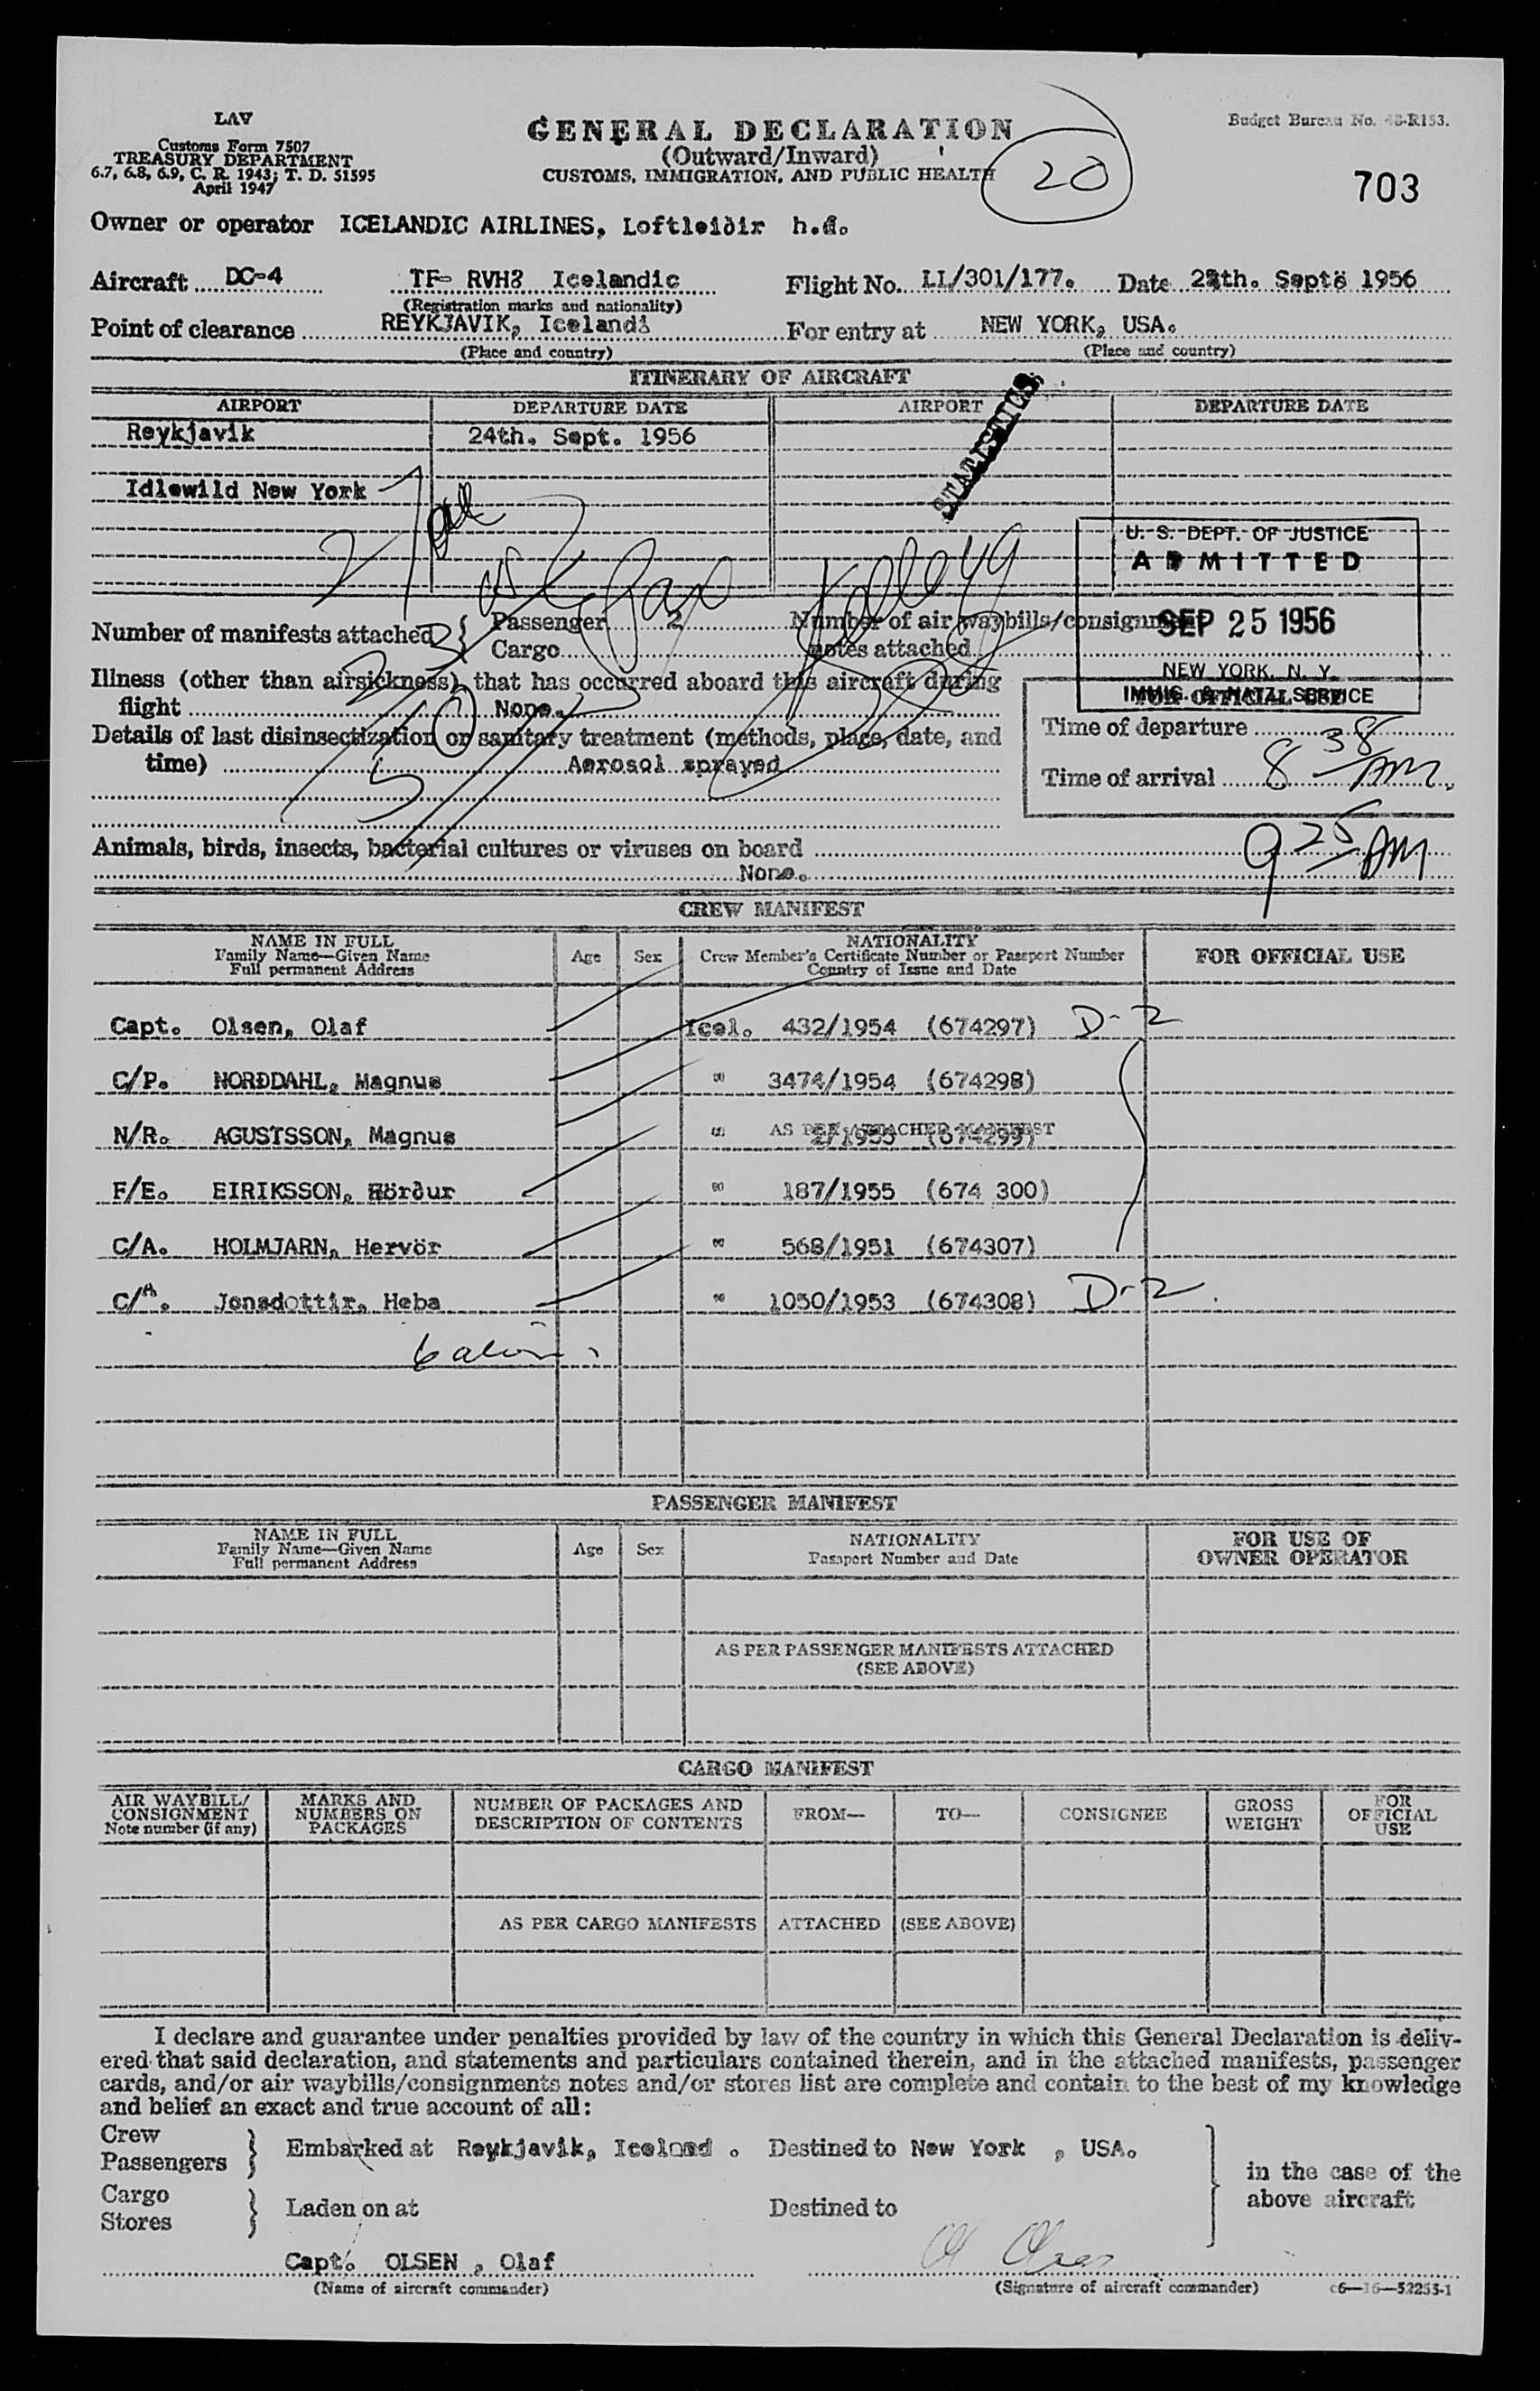 LAV
Customs Form 7507
TREASURY DEPARTMENT
6.7, 6.8, 6.9, C. R. 1943; T. D. 51595
April 1947
GENERAL DECLARATION
(Outward/Inward)
CUSTOMS, IMMIGRATION, AND PUBLIC HEALTH
20
Budget Bureau No. 48-R153.
703
Owner or operator ICELANDIC AIRLINES, Loftleiðir h.f.
Aircraft DC-4 TF- RVH Icelandic Flight No. LL/301/177. Date 24th. Sept 1956
(Registration marks and nationality)
Point of clearance REYKJAVIK, Iceland For entry at NEW YORK, USA.
(Place and country) (Place and country)
ITINERARY OF AIRCRAFT
AIRPORT DEPARTURE DATE AIRPORT DEPARTURE DATE
Reykjavik 24th. Sept. 1956
STATISTICS
Idlewild New York
U. S. DEPT. OF JUSTICE
ADMITTED
SEP 25 1956
NEW YORK, N. Y.
IMMIG. & NATZ. SERVICE
Number of manifests attached { Passenger 2 Number of air waybills/consignment
Cargo notes attached
Illness (other than airsickness) that has occurred aboard this aircraft during
flight None.
FOR OFFICIAL USE
Details of last disinsectization or sanitary treatment (methods, place, date, and
time) Aerosol sprayed
Time of departure
Time of arrival 8 38 AM.
Animals, birds, insects, bacterial cultures or viruses on board
None.
9 25 AM
CREW MANIFEST
NAME IN FULL
Family Name—Given Name
Full permanent Address
Age Sex
NATIONALITY
Crew Member's Certificate Number or Passport Number
Country of Issue and Date
FOR OFFICIAL USE
Capt. Olsen, Olaf Icel. 432/1954 (674297) D-2
C/P. NORÐDAHL, Magnus " 3474/1954 (674298)
N/R. AGUSTSSON, Magnus " 2/1955 (674299)
AS PER ATTACHED MANIFEST
F/E. EIRIKSSON, Hörður " 187/1955 (674 300)
C/A. HOLMJARN, Hervör " 568/1951 (674307)
C/A. Jonsdottir, Heba " 1050/1953 (674308) D-2
PASSENGER MANIFEST
NAME IN FULL
Family Name—Given Name
Full permanent Address
Age Sex
NATIONALITY
Passport Number and Date
FOR USE OF
OWNER OPERATOR
AS PER PASSENGER MANIFESTS ATTACHED
(SEE ABOVE)
CARGO MANIFEST
AIR WAYBILL/
CONSIGNMENT
Note number (if any)
MARKS AND
NUMBERS ON
PACKAGES
NUMBER OF PACKAGES AND
DESCRIPTION OF CONTENTS
FROM— TO— CONSIGNEE
GROSS
WEIGHT
FOR
OFFICIAL
USE
AS PER CARGO MANIFESTS ATTACHED (SEE ABOVE)
I declare and guarantee under penalties provided by law of the country in which this General Declaration is deliv-
ered that said declaration, and statements and particulars contained therein, and in the attached manifests, passenger
cards, and/or air waybills/consignments notes and/or stores list are complete and contain to the best of my knowledge
and belief an exact and true account of all:
Crew
Passengers } Embarked at Reykjavik, Iceland . Destined to New York , USA.
in the case of the
above aircraft
Cargo
Stores } Laden on at Destined to
Capt. OLSEN , Olaf
(Name of aircraft commander) (Signature of aircraft commander)